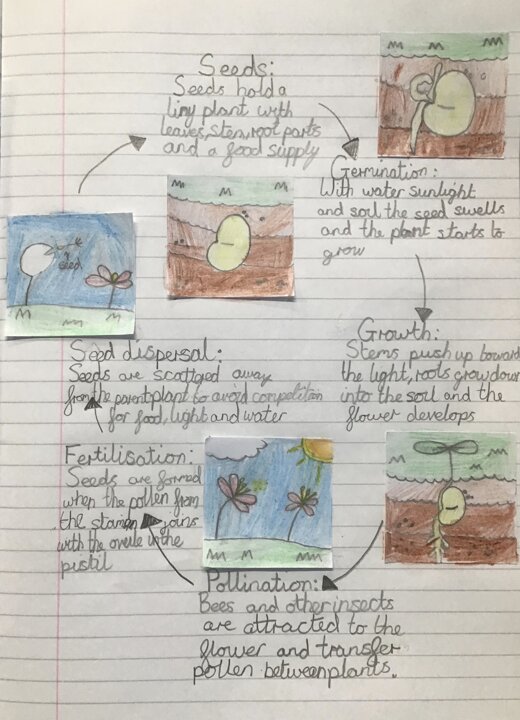 Seeds:
Seeds hold a
tiny plant with
leaves, stem, root parts
and a food supply
Germination:
With water sunlight
and soil the seed swells
and the plant starts to
grow
Growth:
Stems push up toward
the light, roots grow down
into the soil and the
flower develops
Pollination:
Bees and other insects
are attracted to the
flower and transfer
pollen between plants.
Fertilisation:
Seeds are formed
when the pollen from
the stamen joins
with the ovule in the
pistil
Seed dispersal:
Seeds are scattged away
from the parent plant to avoid competition
for food, light and water
seed